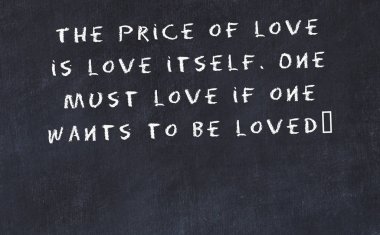 THE PRICE OF LOVE
IS LOVE ITSELF. ONE
MUST LOVE IF ONE
WANTS TO BE LOVED▯